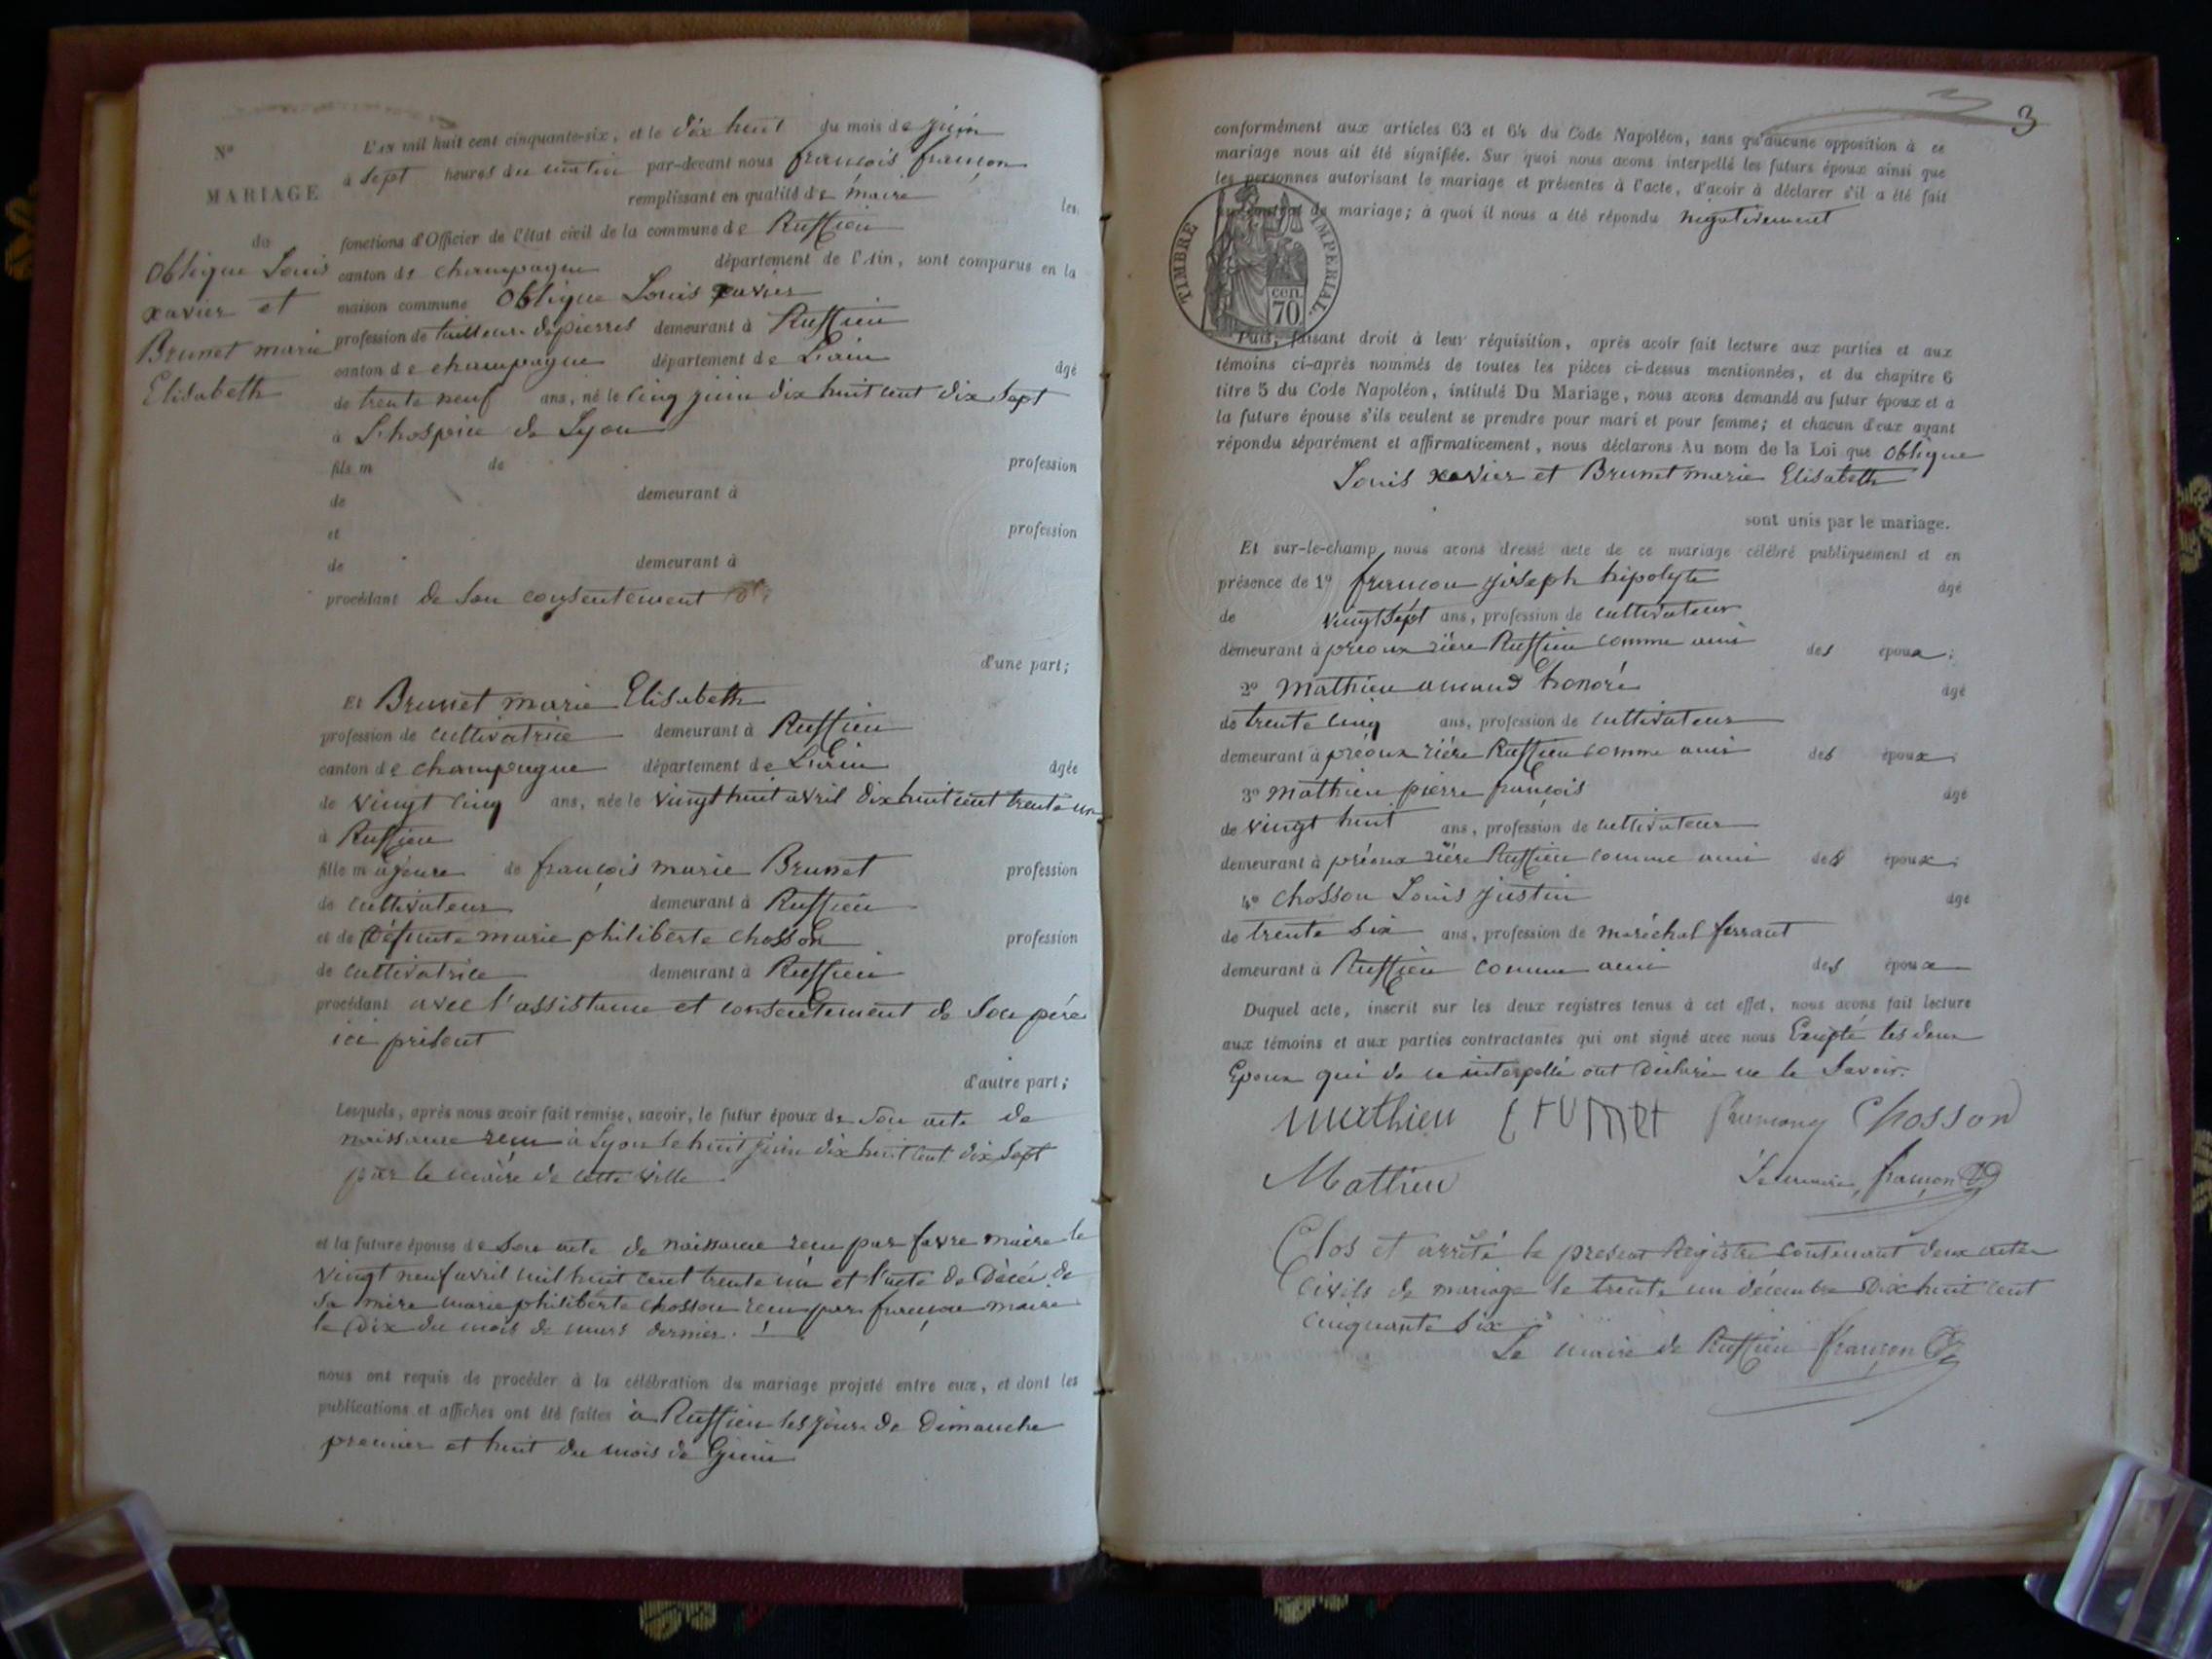 Nº
MARIAGE
de
Oblique Louis
xavier et
Brunet marie
Elisabeth
L'AN mil huit cent cinquante-six, et le dix huit du mois de juin
à sept heures du matin par-devant nous françois françon
remplissant en qualité de maire les
fonctions d'Officier de l'état civil de la commune de Ruffieu
canton de champagne département de l'Ain, sont comparus en la
maison commune Oblique Louis xavier
profession de tailleur de pierres demeurant à Ruffieu
canton de champagne département de L'ain âgé
de trente neuf ans, né le cinq juin dix huit cent dix Sept
à L'hospice de Lyon
fils m de profession
de demeurant à
et profession
de demeurant à
procédant de Son consentement
d'une part;
Et Brunet marie Elisabeth
profession de cultivatrice demeurant à Ruffieu
canton de champagne département de L'ain âgée
de vingt cinq ans, née le vingt huit avril dix huit cent trente un
à Ruffieu
fille majeure de françois marie Brunet profession
de cultivateur demeurant à Ruffieu
et de Défunte marie philiberte chosson profession
de cultivatrice demeurant à Ruffieu
procédant avec l'assistance et consentement de Son père
ici présent
d'autre part;
Lesquels, après nous avoir fait remise, savoir, le futur époux de Son acte de
naissance reçu à Lyon le huit juin dix huit cent dix Sept
par le maire de cette ville
et la future épouse de Son acte de naissance reçu par favre maire le
vingt neuf avril mil huit cent trente un et l'acte de Décès de
Sa mère marie philiberte chosson reçu par françon maire
le Dix du mois de mars dernier.
nous ont requis de procéder à la célébration du mariage projeté entre eux, et dont les
publications et affiches ont été faites à Ruffieu les jours de Dimanche
premier et huit du mois de Juin
3
conformément aux articles 63 et 64 du Code Napoléon, sans qu'aucune opposition à ce
mariage nous ait été signifiée. Sur quoi nous avons interpellé les futurs époux ainsi que
les personnes autorisant le mariage et présentes à l'acte, d'avoir à déclarer s'il a été fait
de mariage; à quoi il nous a été répondu négativement
TIMBRE IMPERIAL
cen.
70
Puis, faisant droit à leur réquisition, après avoir fait lecture aux parties et aux
témoins ci-après nommés de toutes les pièces ci-dessus mentionnées, et du chapitre 6
titre 5 du Code Napoléon, intitulé Du Mariage, nous avons demandé au futur époux et à
la future épouse s'ils veulent se prendre pour mari et pour femme; et chacun d'eux ayant
répondu séparément et affirmativement, nous déclarons Au nom de la Loi que Oblique
Louis xavier et Brunet marie Elisabeth
sont unis par le mariage.
Et sur-le-champ nous avons dressé acte de ce mariage célébré publiquement et en
présence de 1º françon joseph hipolyte âgé
de vingt Sept ans, profession de cultivateur
demeurant à préoux rière Ruffieu comme ami des époux;
2º Mathieu amand honoré âgé
de trente cinq ans, profession de cultivateur
demeurant à préoux rière Ruffieu comme ami des époux;
3º Mathieu pierre françois âgé
de vingt huit ans, profession de cultivateur
demeurant à préoux rière Ruffieu comme ami des époux;
4º chosson Louis justin âgé
de trente Six ans, profession de maréchal ferrant
demeurant à Ruffieu comme ami des époux
Duquel acte, inscrit sur les deux registres tenus à cet effet, nous avons fait lecture
aux témoins et aux parties contractantes qui ont signé avec nous Excepté les deux
Epoux qui de ce interpellé ont déclaré ne le Savoir.
mathieu brunet françon Chosson
Mathieu Le maire, françon
Clos et arrêté le présent Registre contenant deux actes
civils de mariage le trente un décembre Dix huit cent
cinquante Six
Le maire de Ruffieu françon